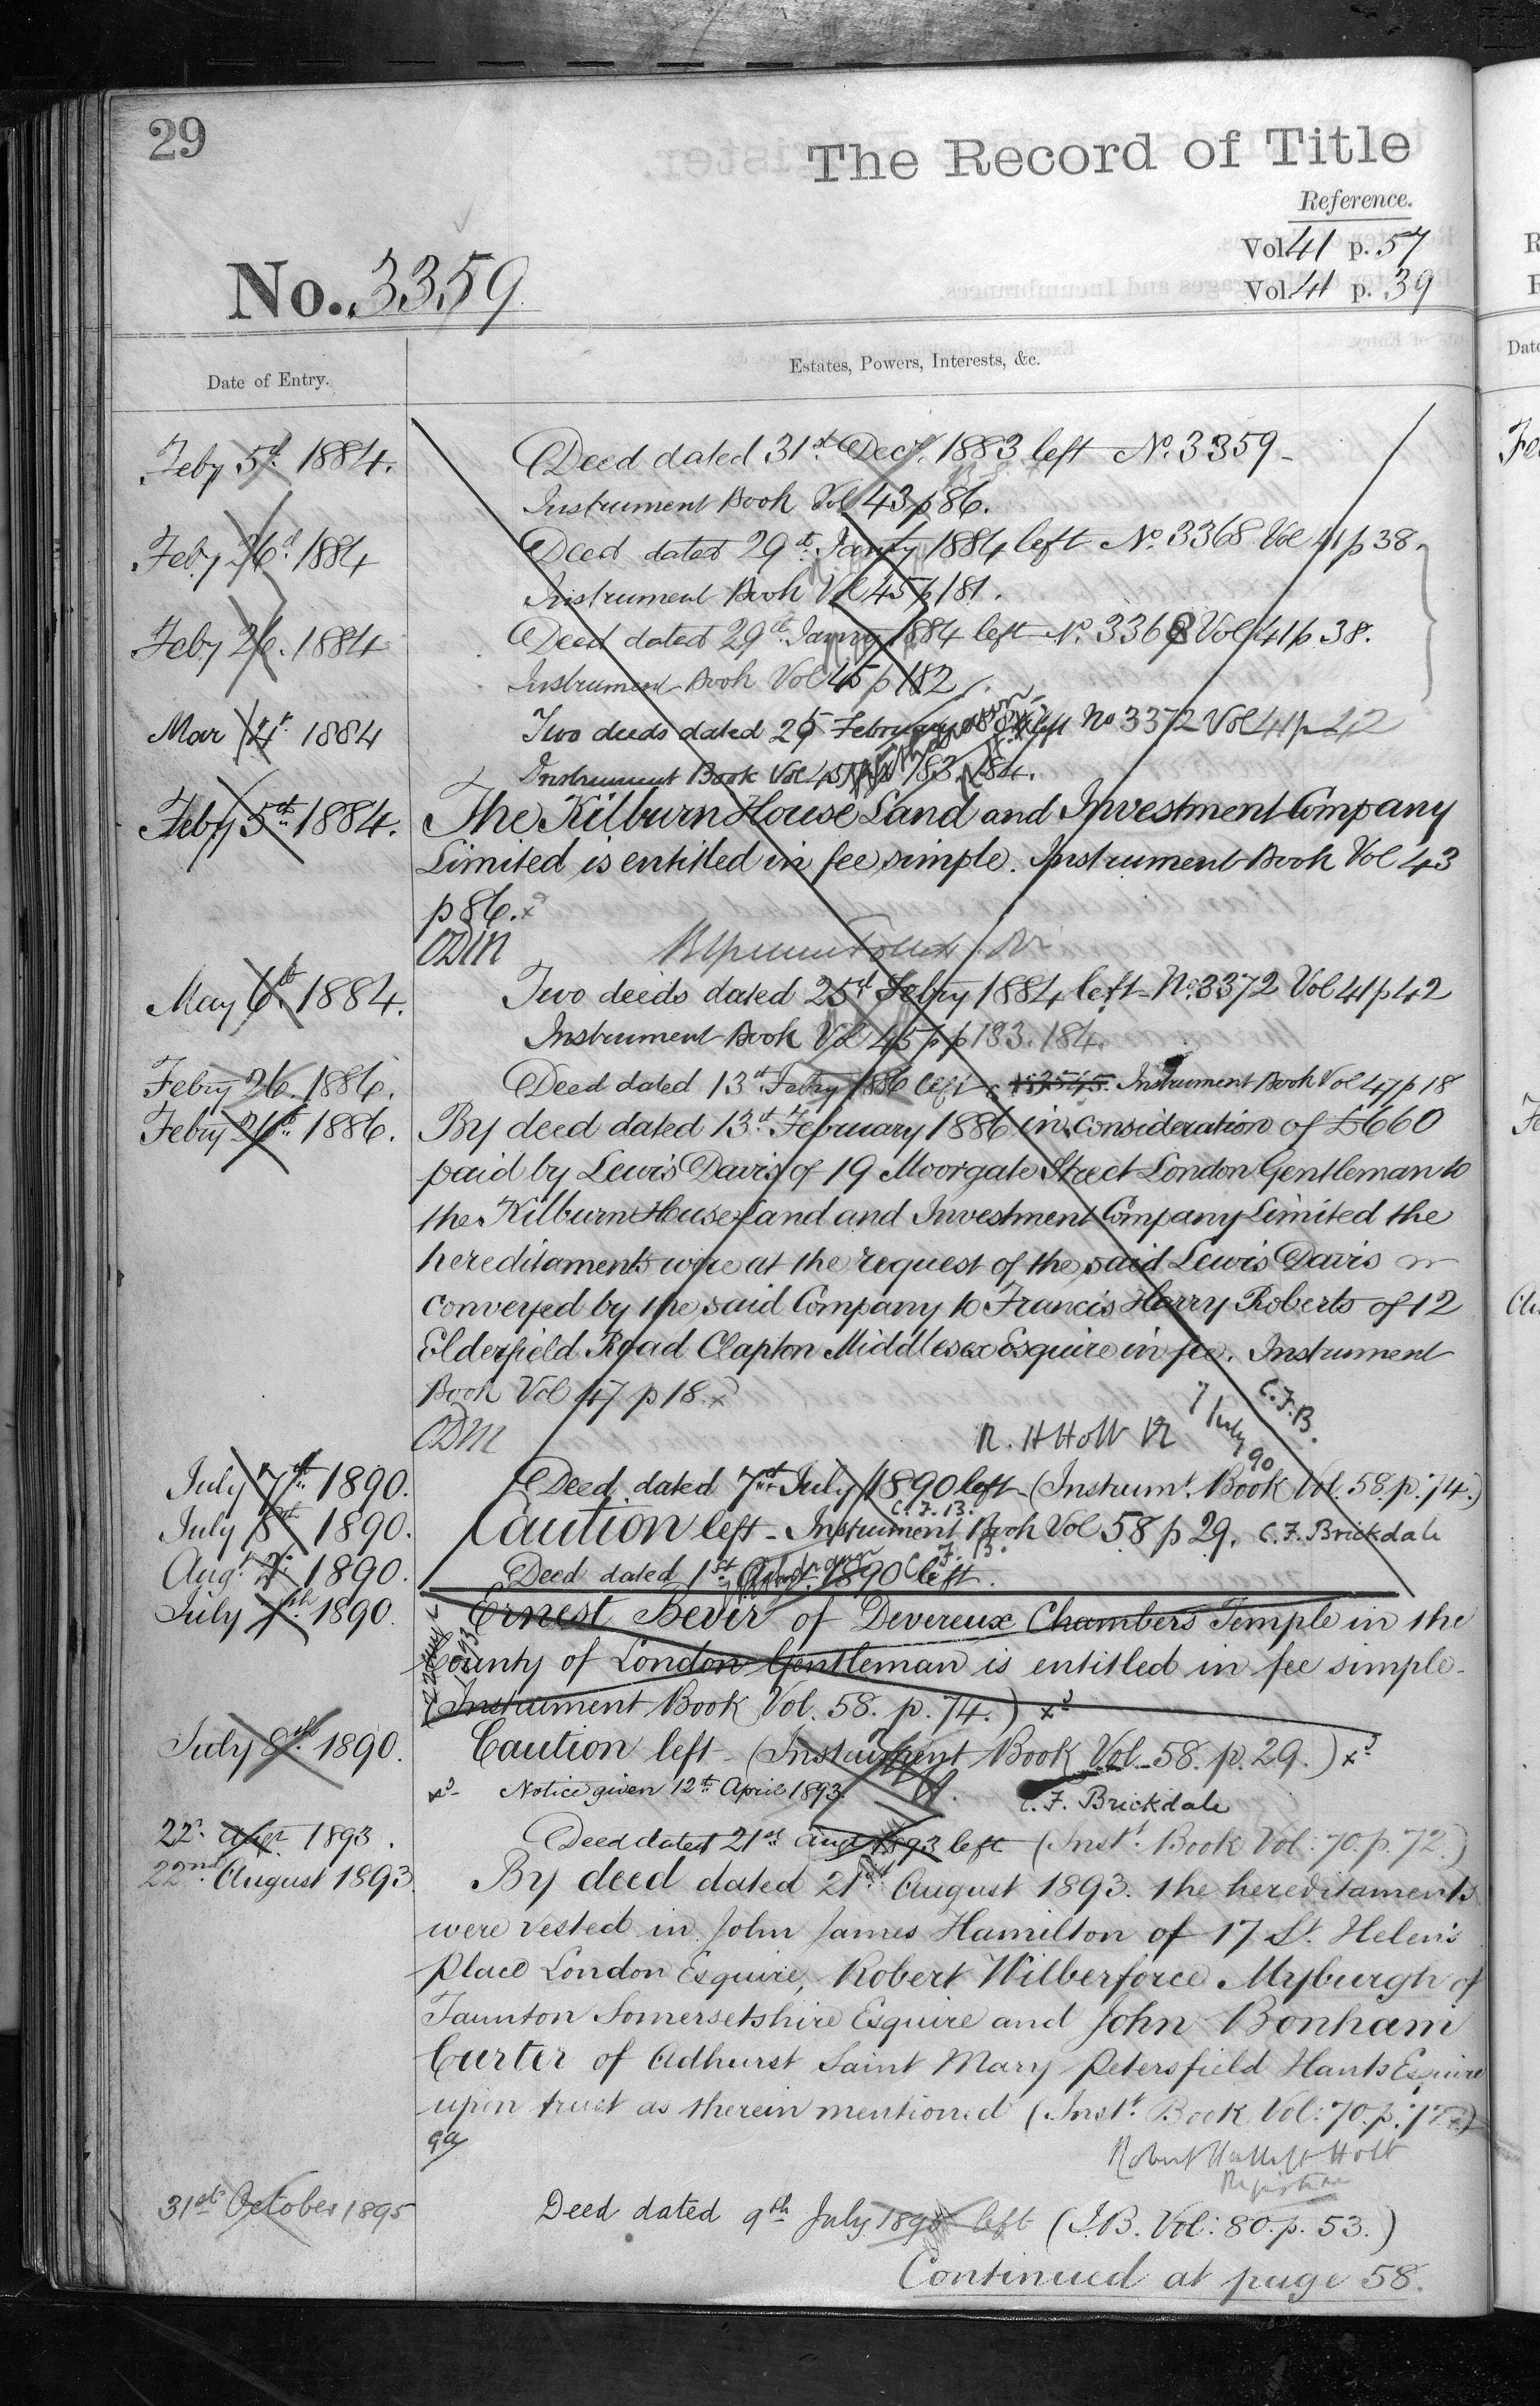 29
The Record of Title
Reference.
Vol. 41 p. 57
Vol. 41 p. 39
No. 3359
Date of Entry.
Estates, Powers, Interests, &c.
Feby 5th 1884. Deed dated 31st Decr. 1883 left No. 3359 -
Instrument Book Vol 43 p 86.
Feby 26th 1884 Deed dated 29th Janry 1884 left No. 3368 Vol 41 p 38.
Instrument Book Vol 45 p 181.
Feby 26. 1884 Deed dated 29th Janry 1884 left No. 3368 Vol 41 p 38.
Instrument Book Vol 45 p 182
Mar 4th 1884 Two deeds dated 25 February 1884 left No 3372 Vol 41 p 42
Instrument Book Vol 45 183. 184.
Feby 5th 1884. The Kilburn House Land and Investment Company
Limited is entitled in fee simple. Instrument Book Vol 43
p 86.
ODM
May 6th 1884. Two deeds dated 25th Febry 1884 left No. 3372 Vol 41 p 42
Instrument Book Vol 45 pp 183. 184.
Febry 26. 1886. Deed dated 13th Febry 1886 left No 3545. Instrument Book Vol 47 p 18
Febry 26th 1886. By deed dated 13th February 1886 in consideration of £660
paid by Lewis Davis of 19 Moorgate Street London Gentleman to
the Kilburn House Land and Investment Company Limited the
hereditaments were at the request of the said Lewis Davis
conveyed by the said Company to Francis Harry Roberts of 12
Elderfield Road Clapton Middlesex Esquire in fee. Instrument
Book Vol 47 p 18.
ODM R. H Holt 7 July 90 C.F.B.
July 7th 1890. Deed dated 7th July 1890 left (Instrumt. Book Vol. 58. p. 74.)
C.F.B.
July 8th 1890. Caution left - Instrument Book Vol 58 p 29. C.F. Brickdale
Augt 2d 1890. Deed dated 1st Augt. 1890 left.
July 7th 1890. Ernest Bevir of Devereux Chambers Temple in the
County of London Gentleman is entitled in fee simple -
(Instrument Book Vol. 58. p. 74.)
July 8th 1890. Caution left - (Instrument Book Vol. 58. p. 29.)
Notice given 12th April 1893. C.F. Brickdale
22d Augt 1893. Deed dated 21st Augt 1893 left (Instt. Book Vol: 70. p. 72.)
22nd August 1893. By deed dated 21st August 1893. the hereditaments
were vested in John James Hamilton of 17 St. Helen's
Place London Esquire, Robert Wilberforce Myburgh of
Taunton Somersetshire Esquire and John Bonham
Carter of Adhurst Saint Mary Petersfield Hants Esquire
upon trust as therein mentioned (Instt. Book Vol: 70. p. 72.)
Robert Hallett Holt
Registrar
31st October 1895 Deed dated 9th July 1895 left (I.B. Vol: 80. p. 53.)
Continued at page 58.